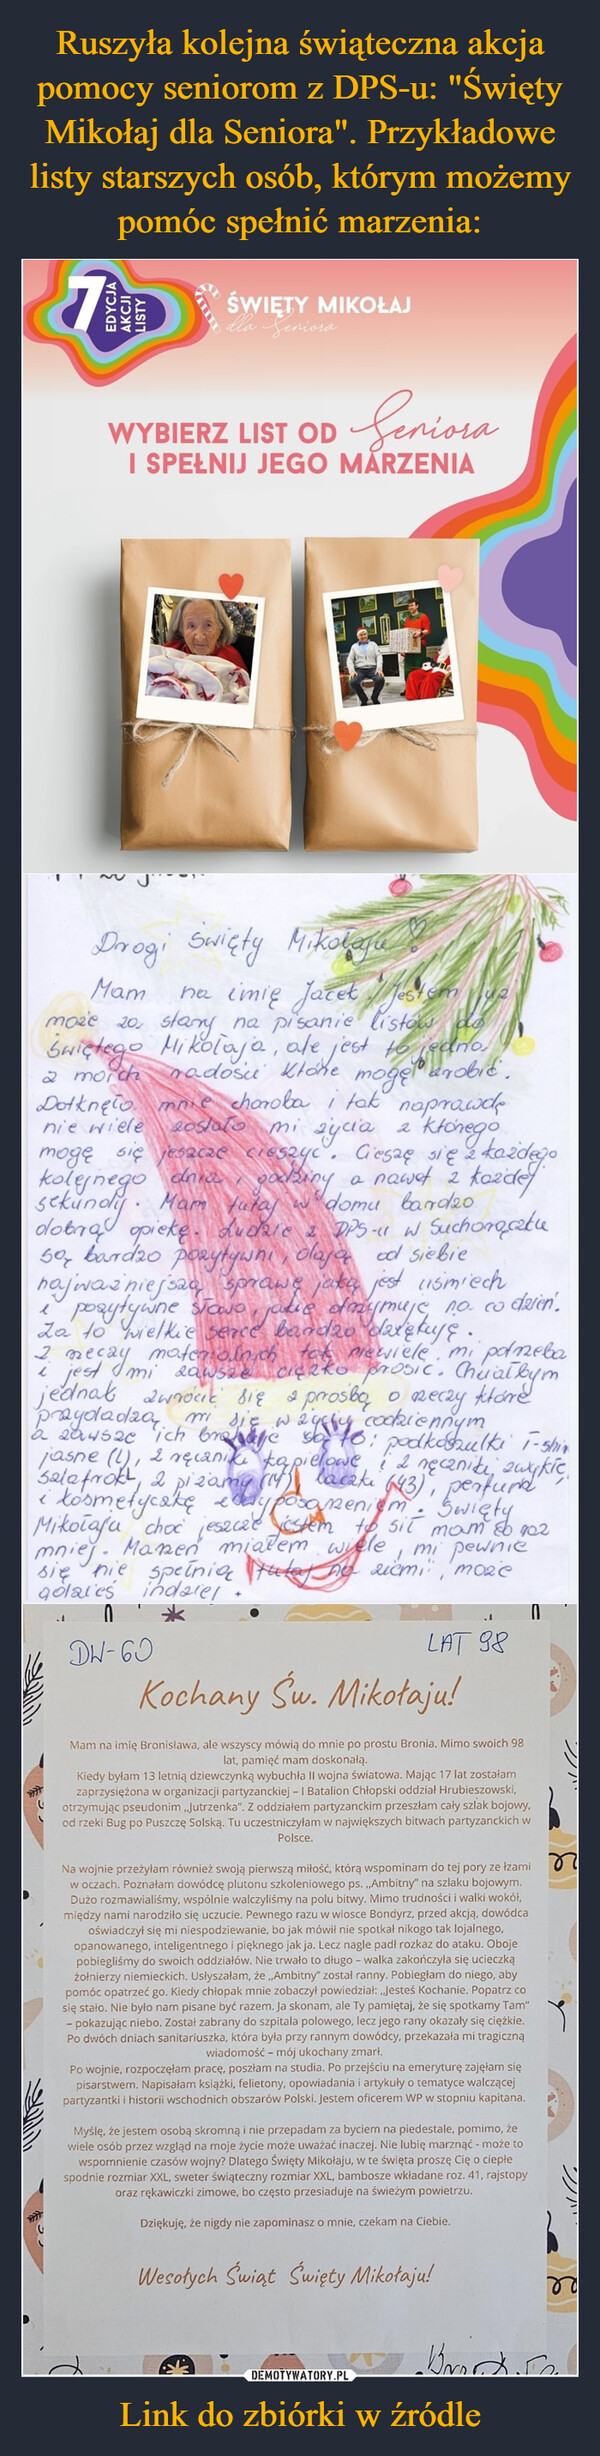 Ruszyła kolejna świąteczna akcja
pomocy seniorom z DPS-u: "Święty
Mikołaj dla Seniora". Przykładowe
listy starszych osób, którym możemy
pomóc spełnić marzenia:
7 EDYCJA
AKCJI
LISTY
ŚWIĘTY MIKOŁAJ
dla Seniora
WYBIERZ LIST OD Seniora
I SPEŁNIJ JEGO MARZENIA
Drogi Święty Mikołaju
Mam na imię Jacek. Jestem już
może za stary na pisanie listów do
Świętego Mikołaja, ale jest to jedna
z moich radości które mogę zrobić.
Dotknęła mnie choroba i tak naprawdę
nie wiele zostało mi życia z którego
mogę się jeszcze cieszyć. Cieszę się z każdego
kolejnego dnia, godziny a nawet z każdej
sekundy. Mam tutaj w domu bardzo
dobrą opiekę. Ludzie z DPS-u w Suchorączku
są bardzo pozytywni, dają od siebie
najważniejszą sprawę jaką jest uśmiech
i pozytywne słowo, jakie otrzymuję na co dzień.
Za to wielkie serce bardzo dziękuję.
Z rzeczy materialnych tak niewiele mi potrzeba
i jest mi zawsze ciężko prosić. Chciałbym
jednak zwrócić się z prośbą o rzeczy które
przydadzą mi się w życiu codziennym
a zawsze ich brakuje są to: podkoszulki T-shirt
jasne (L), 2 ręczniki kąpielowe i 2 ręczniki zwykłe,
szlafrok L, 2 piżamy laczki (43), perfumy
i kosmetyczkę z wyposażeniem. Święty
Mikołaju choć jeszcze jestem to sił mam co raz
mniej. Marzeń miałem wiele, mi pewnie
się nie spełnią tutaj na ziemi, może
gdzieś indziej.
DW-60 LAT 98
Kochany Św. Mikołaju!
Mam na imię Bronisława, ale wszyscy mówią do mnie po prostu Bronia. Mimo swoich 98
lat, pamięć mam doskonałą.
Kiedy byłam 13 letnią dziewczynką wybuchła II wojna światowa. Mając 17 lat zostałam
zaprzysiężona w organizacji partyzanckiej – I Batalion Chłopski oddział Hrubieszowski,
otrzymując pseudonim „Jutrzenka". Z oddziałem partyzanckim przeszłam cały szlak bojowy,
od rzeki Bug po Puszczę Solską. Tu uczestniczyłam w największych bitwach partyzanckich w
Polsce.
Na wojnie przeżyłam również swoją pierwszą miłość, którą wspominam do tej pory ze łzami
w oczach. Poznałam dowódcę plutonu szkoleniowego ps. „Ambitny" na szlaku bojowym.
Dużo rozmawialiśmy, wspólnie walczyliśmy na polu bitwy. Mimo trudności i walki wokół,
między nami narodziło się uczucie. Pewnego razu w wiosce Bondyrz, przed akcją, dowódca
oświadczył się mi niespodziewanie, bo jak mówił nie spotkał nikogo tak lojalnego,
opanowanego, inteligentnego i pięknego jak ja. Lecz nagle padł rozkaz do ataku. Oboje
pobiegliśmy do swoich oddziałów. Nie trwało to długo – walka zakończyła się ucieczką
żołnierzy niemieckich. Usłyszałam, że „Ambitny" został ranny. Pobiegłam do niego, aby
pomóc opatrzeć go. Kiedy chłopak mnie zobaczył powiedział: „Jesteś Kochanie. Popatrz co
się stało. Nie było nam pisane być razem. Ja skonam, ale Ty pamiętaj, że się spotkamy Tam"
– pokazując niebo. Został zabrany do szpitala polowego, lecz jego rany okazały się ciężkie.
Po dwóch dniach sanitariuszka, która była przy rannym dowódcy, przekazała mi tragiczną
wiadomość – mój ukochany zmarł.
Po wojnie, rozpoczęłam pracę, poszłam na studia. Po przejściu na emeryturę zajęłam się
pisarstwem. Napisałam książki, felietony, opowiadania i artykuły o tematyce walczącej
partyzantki i historii wschodnich obszarów Polski. Jestem oficerem WP w stopniu kapitana.
Myślę, że jestem osobą skromną i nie przepadam za byciem na piedestale, pomimo, że
wiele osób przez wzgląd na moje życie może uważać inaczej. Nie lubię marznąć - może to
wspomnienie czasów wojny? Dlatego Święty Mikołaju, w te święta proszę Cię o ciepłe
spodnie rozmiar XXL, sweter świąteczny rozmiar XXL, bambosze wkładane roz. 41, rajstopy
oraz rękawiczki zimowe, bo często przesiaduje na świeżym powietrzu.
Dziękuję, że nigdy nie zapominasz o mnie, czekam na Ciebie.
Wesołych Świąt Święty Mikołaju!
DEMOTYWATORY.PL
Link do zbiórki w źródle